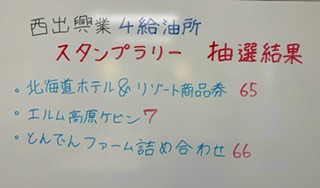 西出興業4給油所
スタンプラリー 抽選結果
・北海道ホテル&リゾート商品券 65
・エルム高原ケビン 7
・とんでんファーム詰め合わせ 66